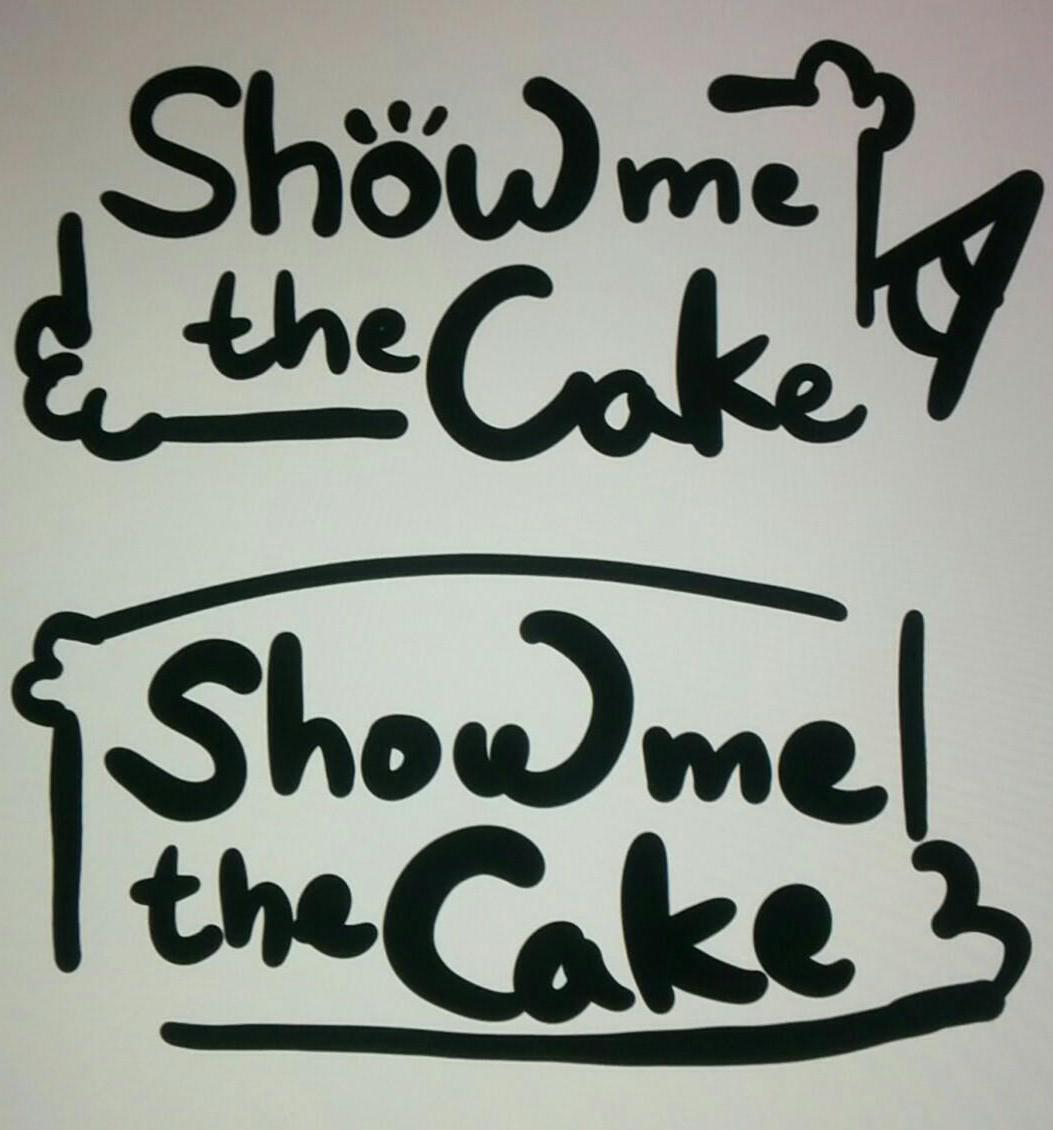 Show me
the Cake
Show me
the Cake